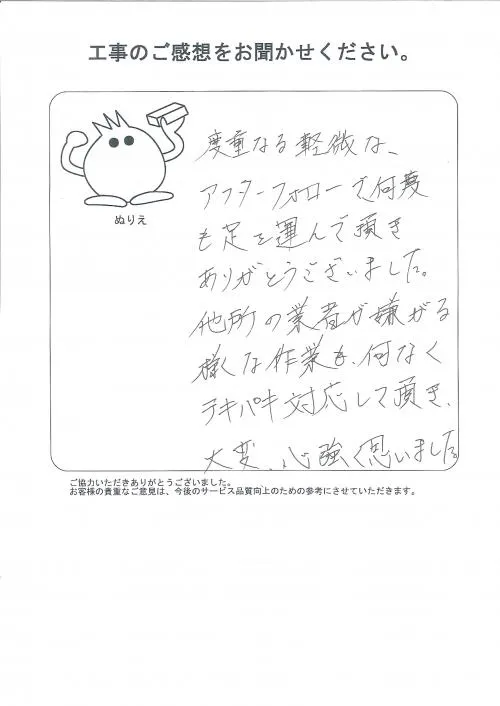 工事のご感想をお聞かせください。
ぬりえ
度重なる軽微な、
アフターフォローで何度
も足を運んで頂き
ありがとうございました。
他所の業者が嫌がる
様な作業も、何なく
テキパキ対応して頂き、
大変、心強く思いました。
ご協力いただきありがとうございました。
お客様の貴重なご意見は、今後のサービス品質向上のための参考にさせていただきます。